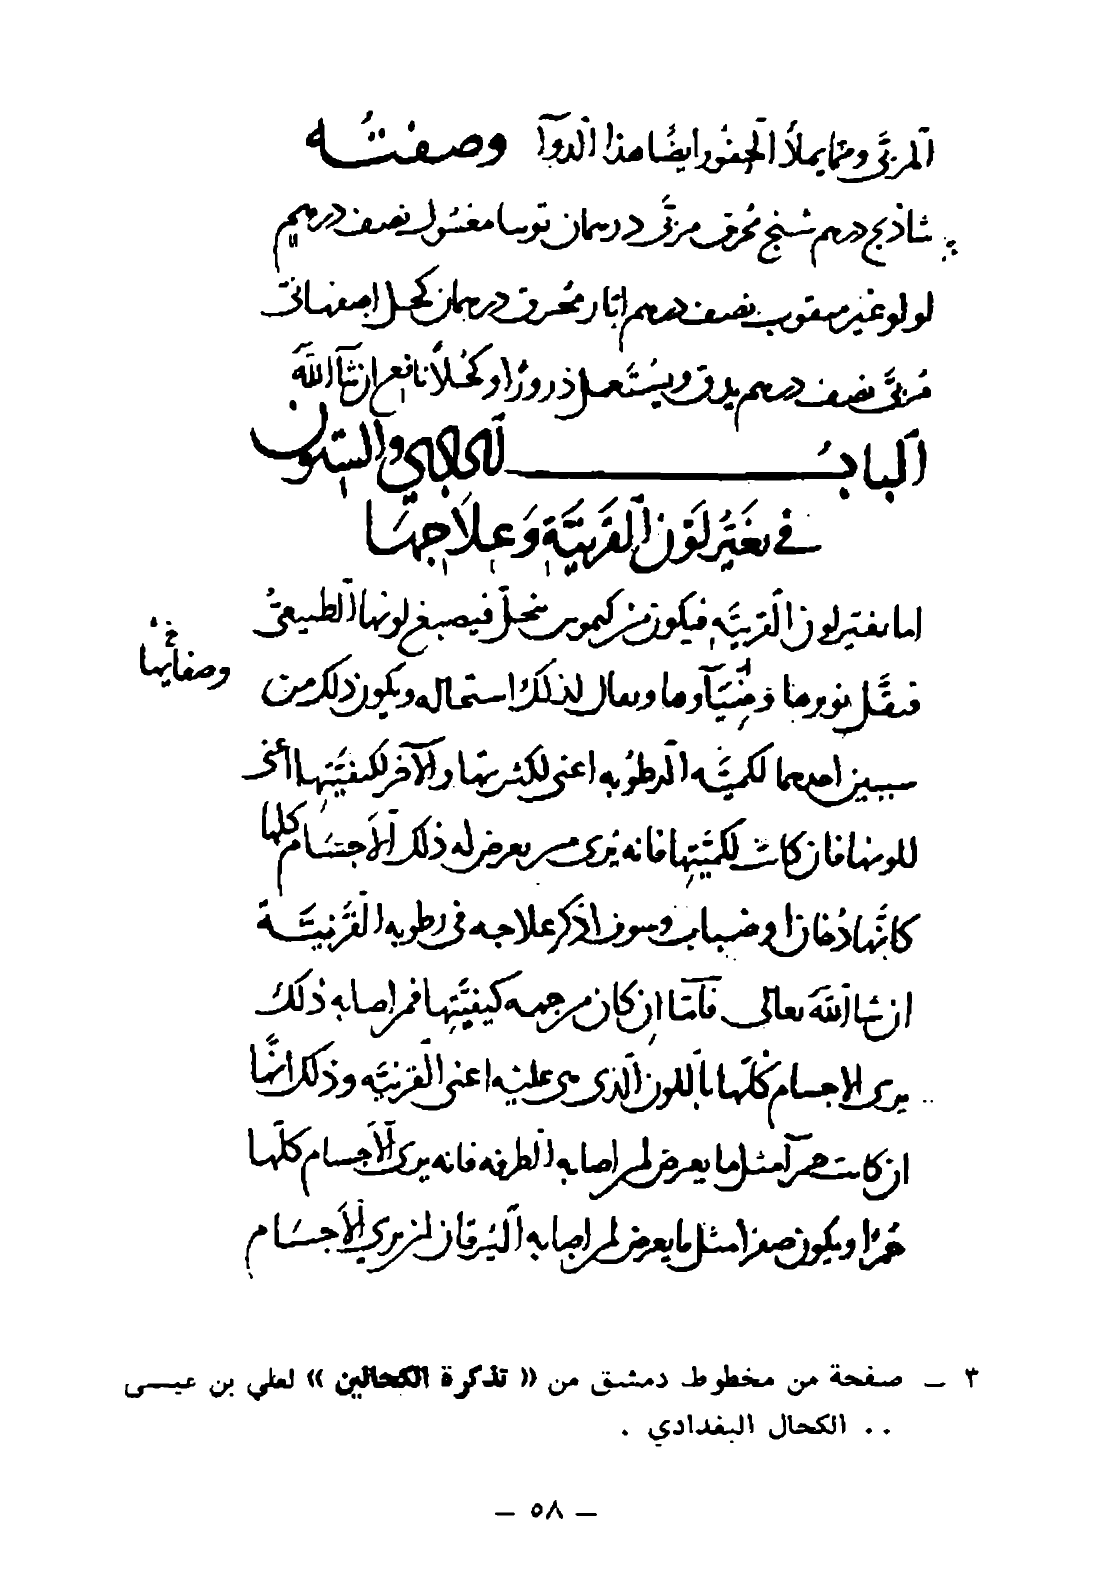 المربَّى ومما يملأ الحفور ايضًا هذا الدوآ وصفتُه
شاذنج درهم شنج مُحرق مربَّى درهمان توتيا مغسُول نصف درهم
لولو غير مثقوب نصف درهم ابار مُحرق درهمان كحل اصفهانى
مُربَّى نصف درهم يدق ويُستَعمل ذرورًا او كُحلًا نافع ان شآ اللهَ
البابُ الحادي والستون
في تغَيُّر لَوْن القَرنيَّة وَعلَاجهَا
اما تغير لون القرنيَّه فيكون من كيموس ينحلّ فيصبغ لونها الطبيعىُّ
فيقَّل نورها وضيآوها ويقال لذلك استحاله ويكون ذلك من
وصفايها
سببين احدهما لكميَّه الرطوُبه اعنى لكثرتها والآخر لكيفيَّتِها اعنى
للونها فان كانت لكميَّتِها فانه يَرى من يعرض له ذلك الأجسَام كلها
كانَّها دُخان او ضباب وسوف اذكر علاجه فى رطوبه القَرنيَّة
ان شا اللهَ تعالى فأمّا اِن كان من جهه كيفيَّتِها فمن اصابه ذلك
يرى الاجسام كُلّها باللون الذى هى عليه اعنى القرنيَّه وذلك انَّها
ان كانت حمرآ مثل ما يعرض لمن اصابه الطرفه فانه يرى الأجسام كلّها
حُمرًا ويكون صفرا مثل ما يعرض لمن اصابه اليَرقان لمن يري الأجسَام
٣ ــ صفحة من مخطوط دمشق من « تذكرة الكحالين » لعلي بن عيسى
. . الكحال البغدادي .
ــ ٥٨ ــ